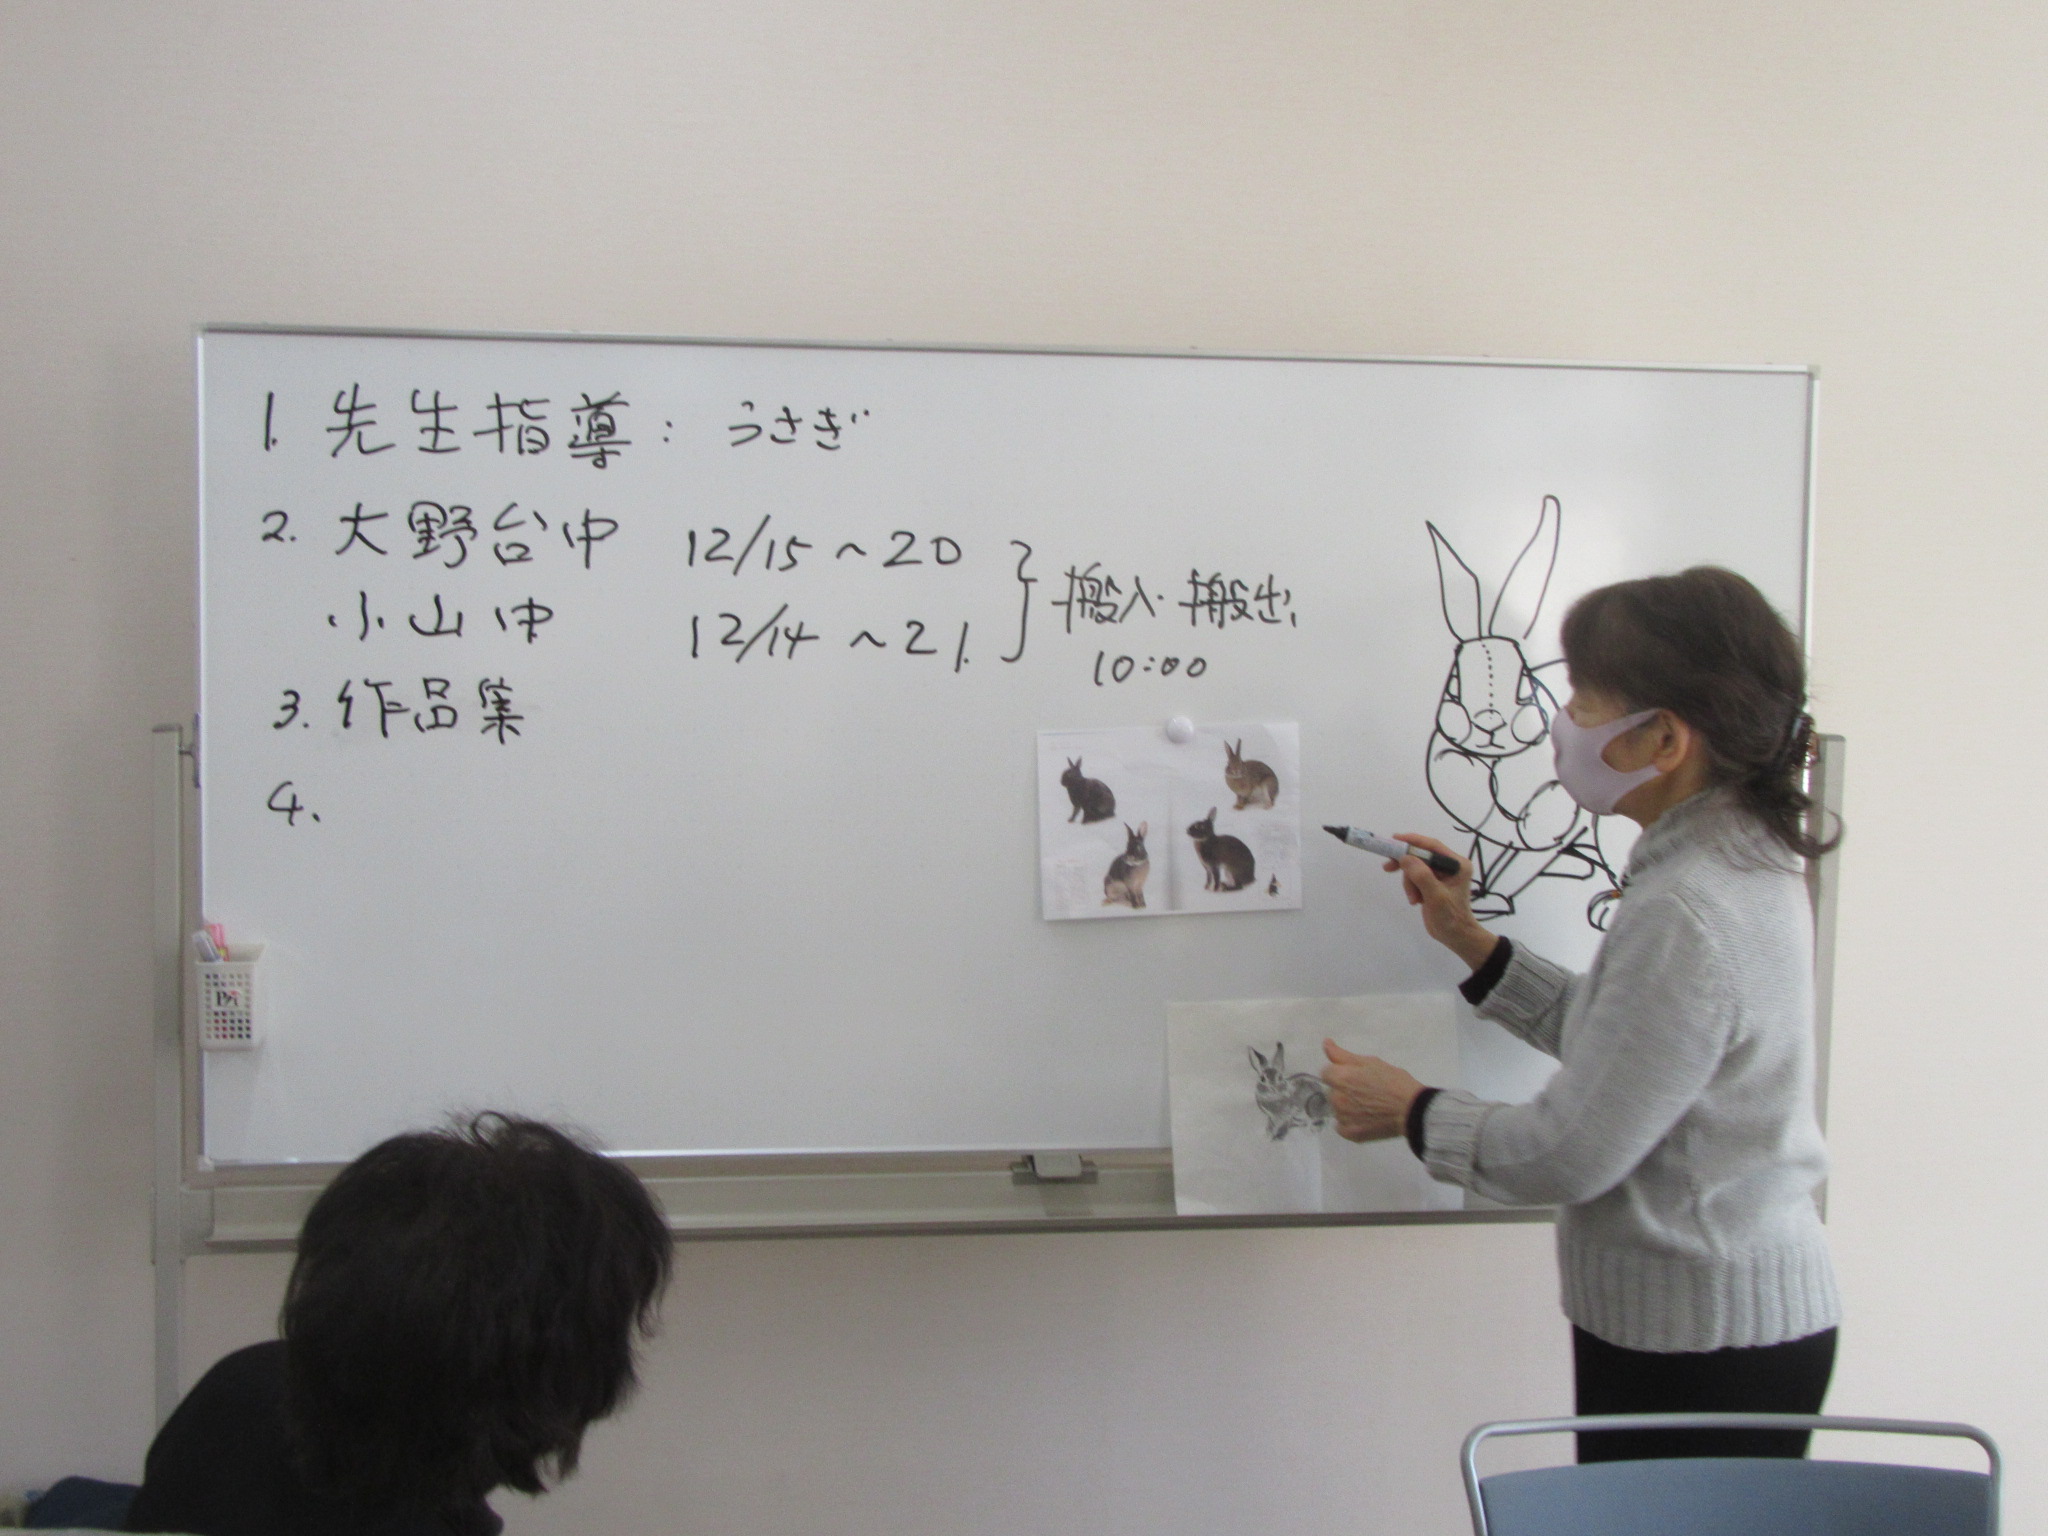 1. 先生指導: うさぎ
2. 大野台中 12/15 ~ 20
小山中 12/14 ~ 21.
搬入・搬出
10:00
3. 作品集
4.